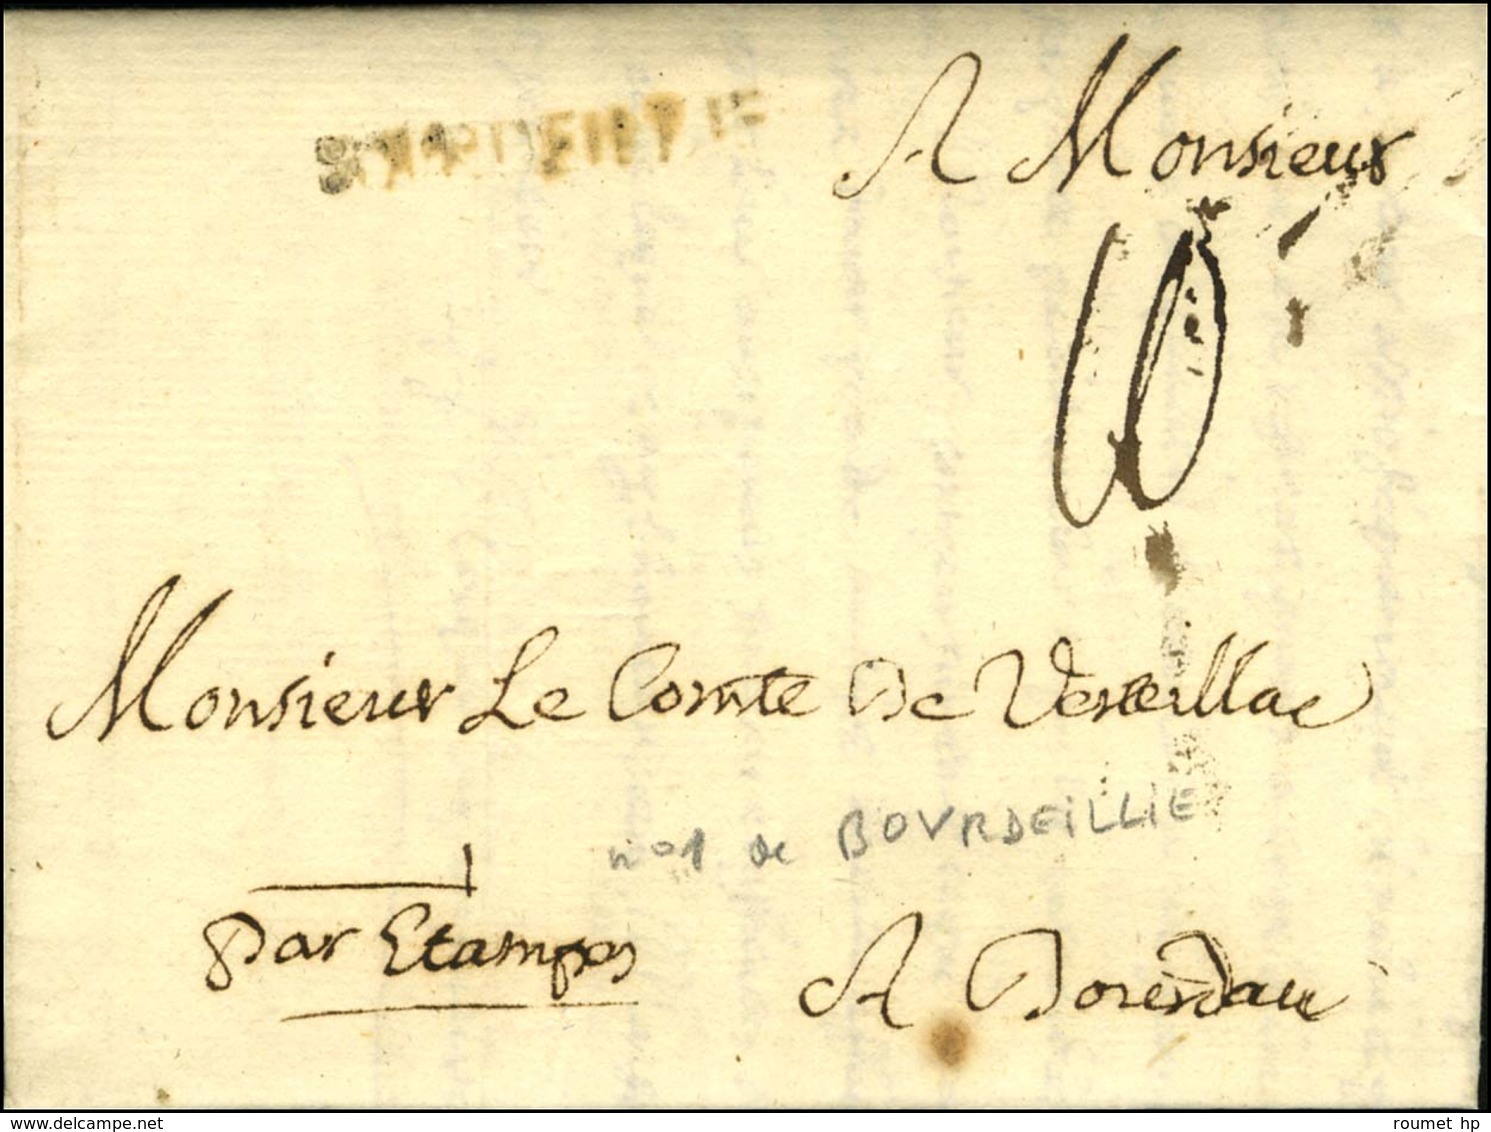 A Monsieur
10
Monsieur Le Comte De Verteillac
n°1 de BOURDEILLIE
par Etampes
A Bourdeau
delcampe.net
roumet hp